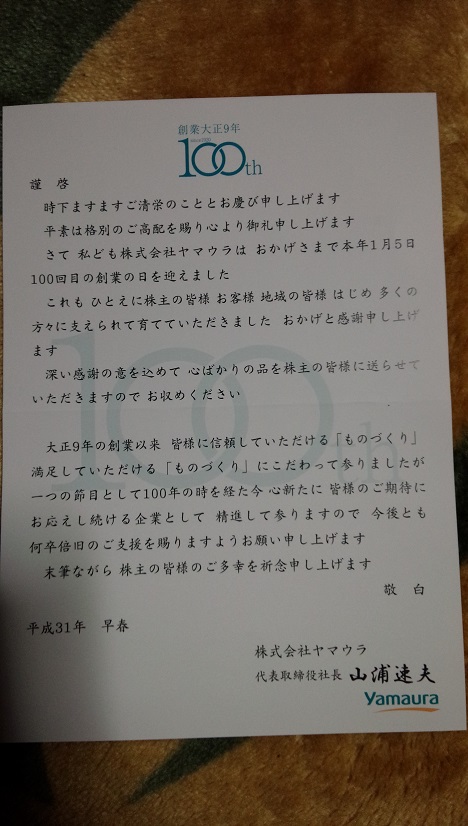 創業大正9年
100th
謹 啓
時下ますますご清栄のこととお慶び申し上げます
平素は格別のご高配を賜り心より御礼申し上げます
さて 私ども株式会社ヤマウラは おかげさまで本年1月5日
100回目の創業の日を迎えました
これも ひとえに株主の皆様 お客様 地域の皆様 はじめ 多くの
方々に支えられて育てていただきました おかげと感謝申し上げ
ます
深い感謝の意を込めて 心ばかりの品を株主の皆様に送らせて
いただきますので お収めください
大正9年の創業以来 皆様に信頼していただける「ものづくり」
満足していただける「ものづくり」にこだわって参りましたが
一つの節目として100年の時を経た今 心新たに 皆様のご期待に
お応えし続ける企業として 精進して参りますので 今後とも
何卒倍旧のご支援を賜りますようお願い申し上げます
末筆ながら 株主の皆様のご多幸を祈念申し上げます
敬 白
平成31年 早春
株式会社ヤマウラ
代表取締役社長 山浦速夫
Yamaura